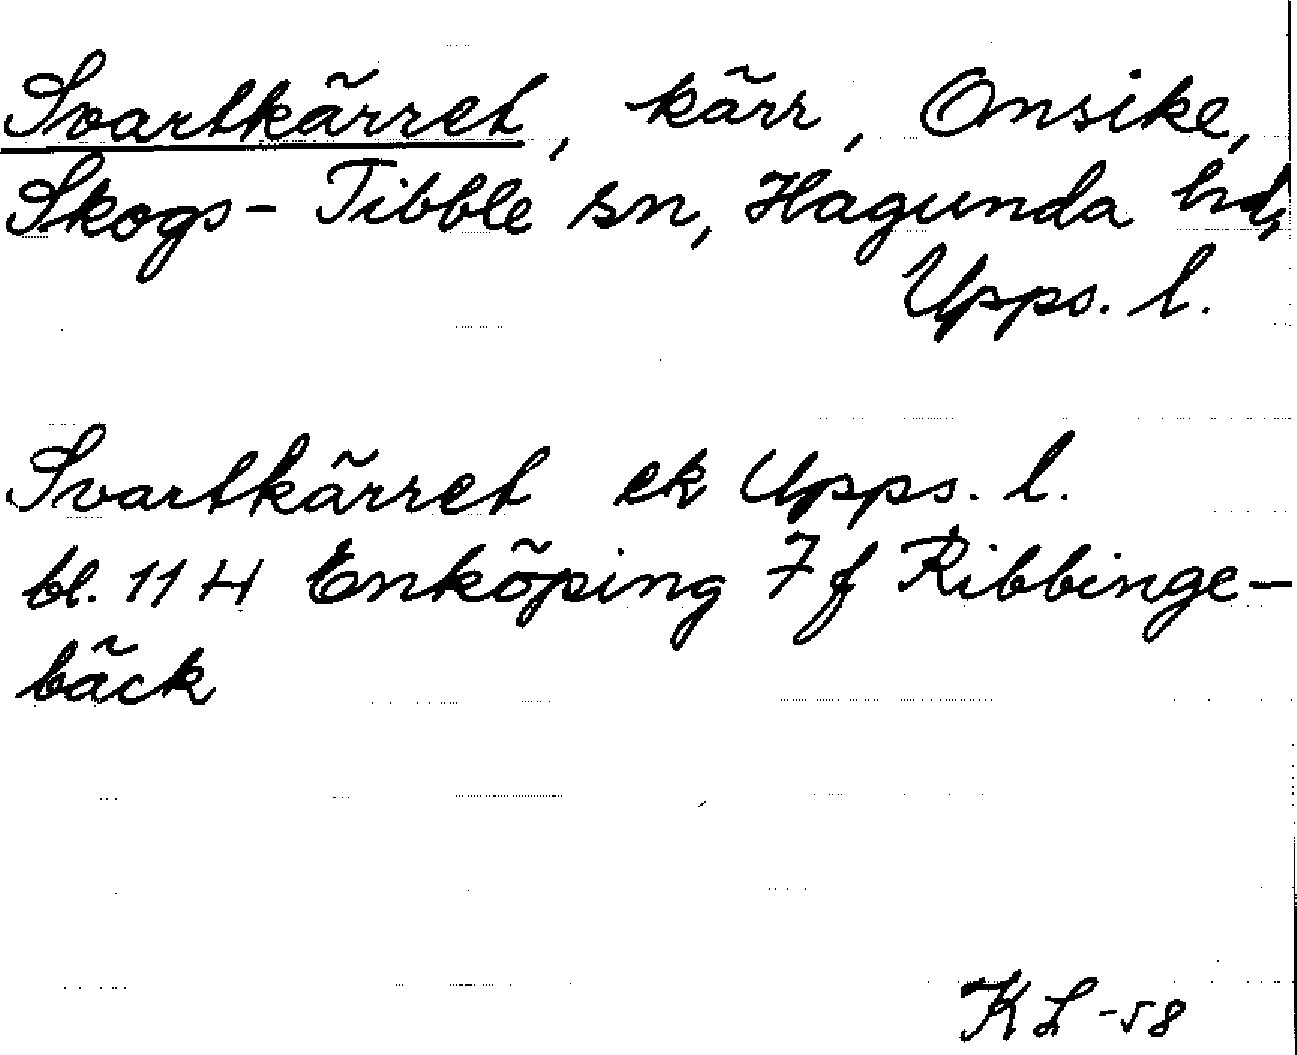 Svartkärret, kärr, Onsike,
Skogs-Tibble sn, Hagunda hd,
Upps. l.
Svartkärret ek Upps. l.
bl. 114 Enköping 7f Ribbinge-
bäck
KL-58